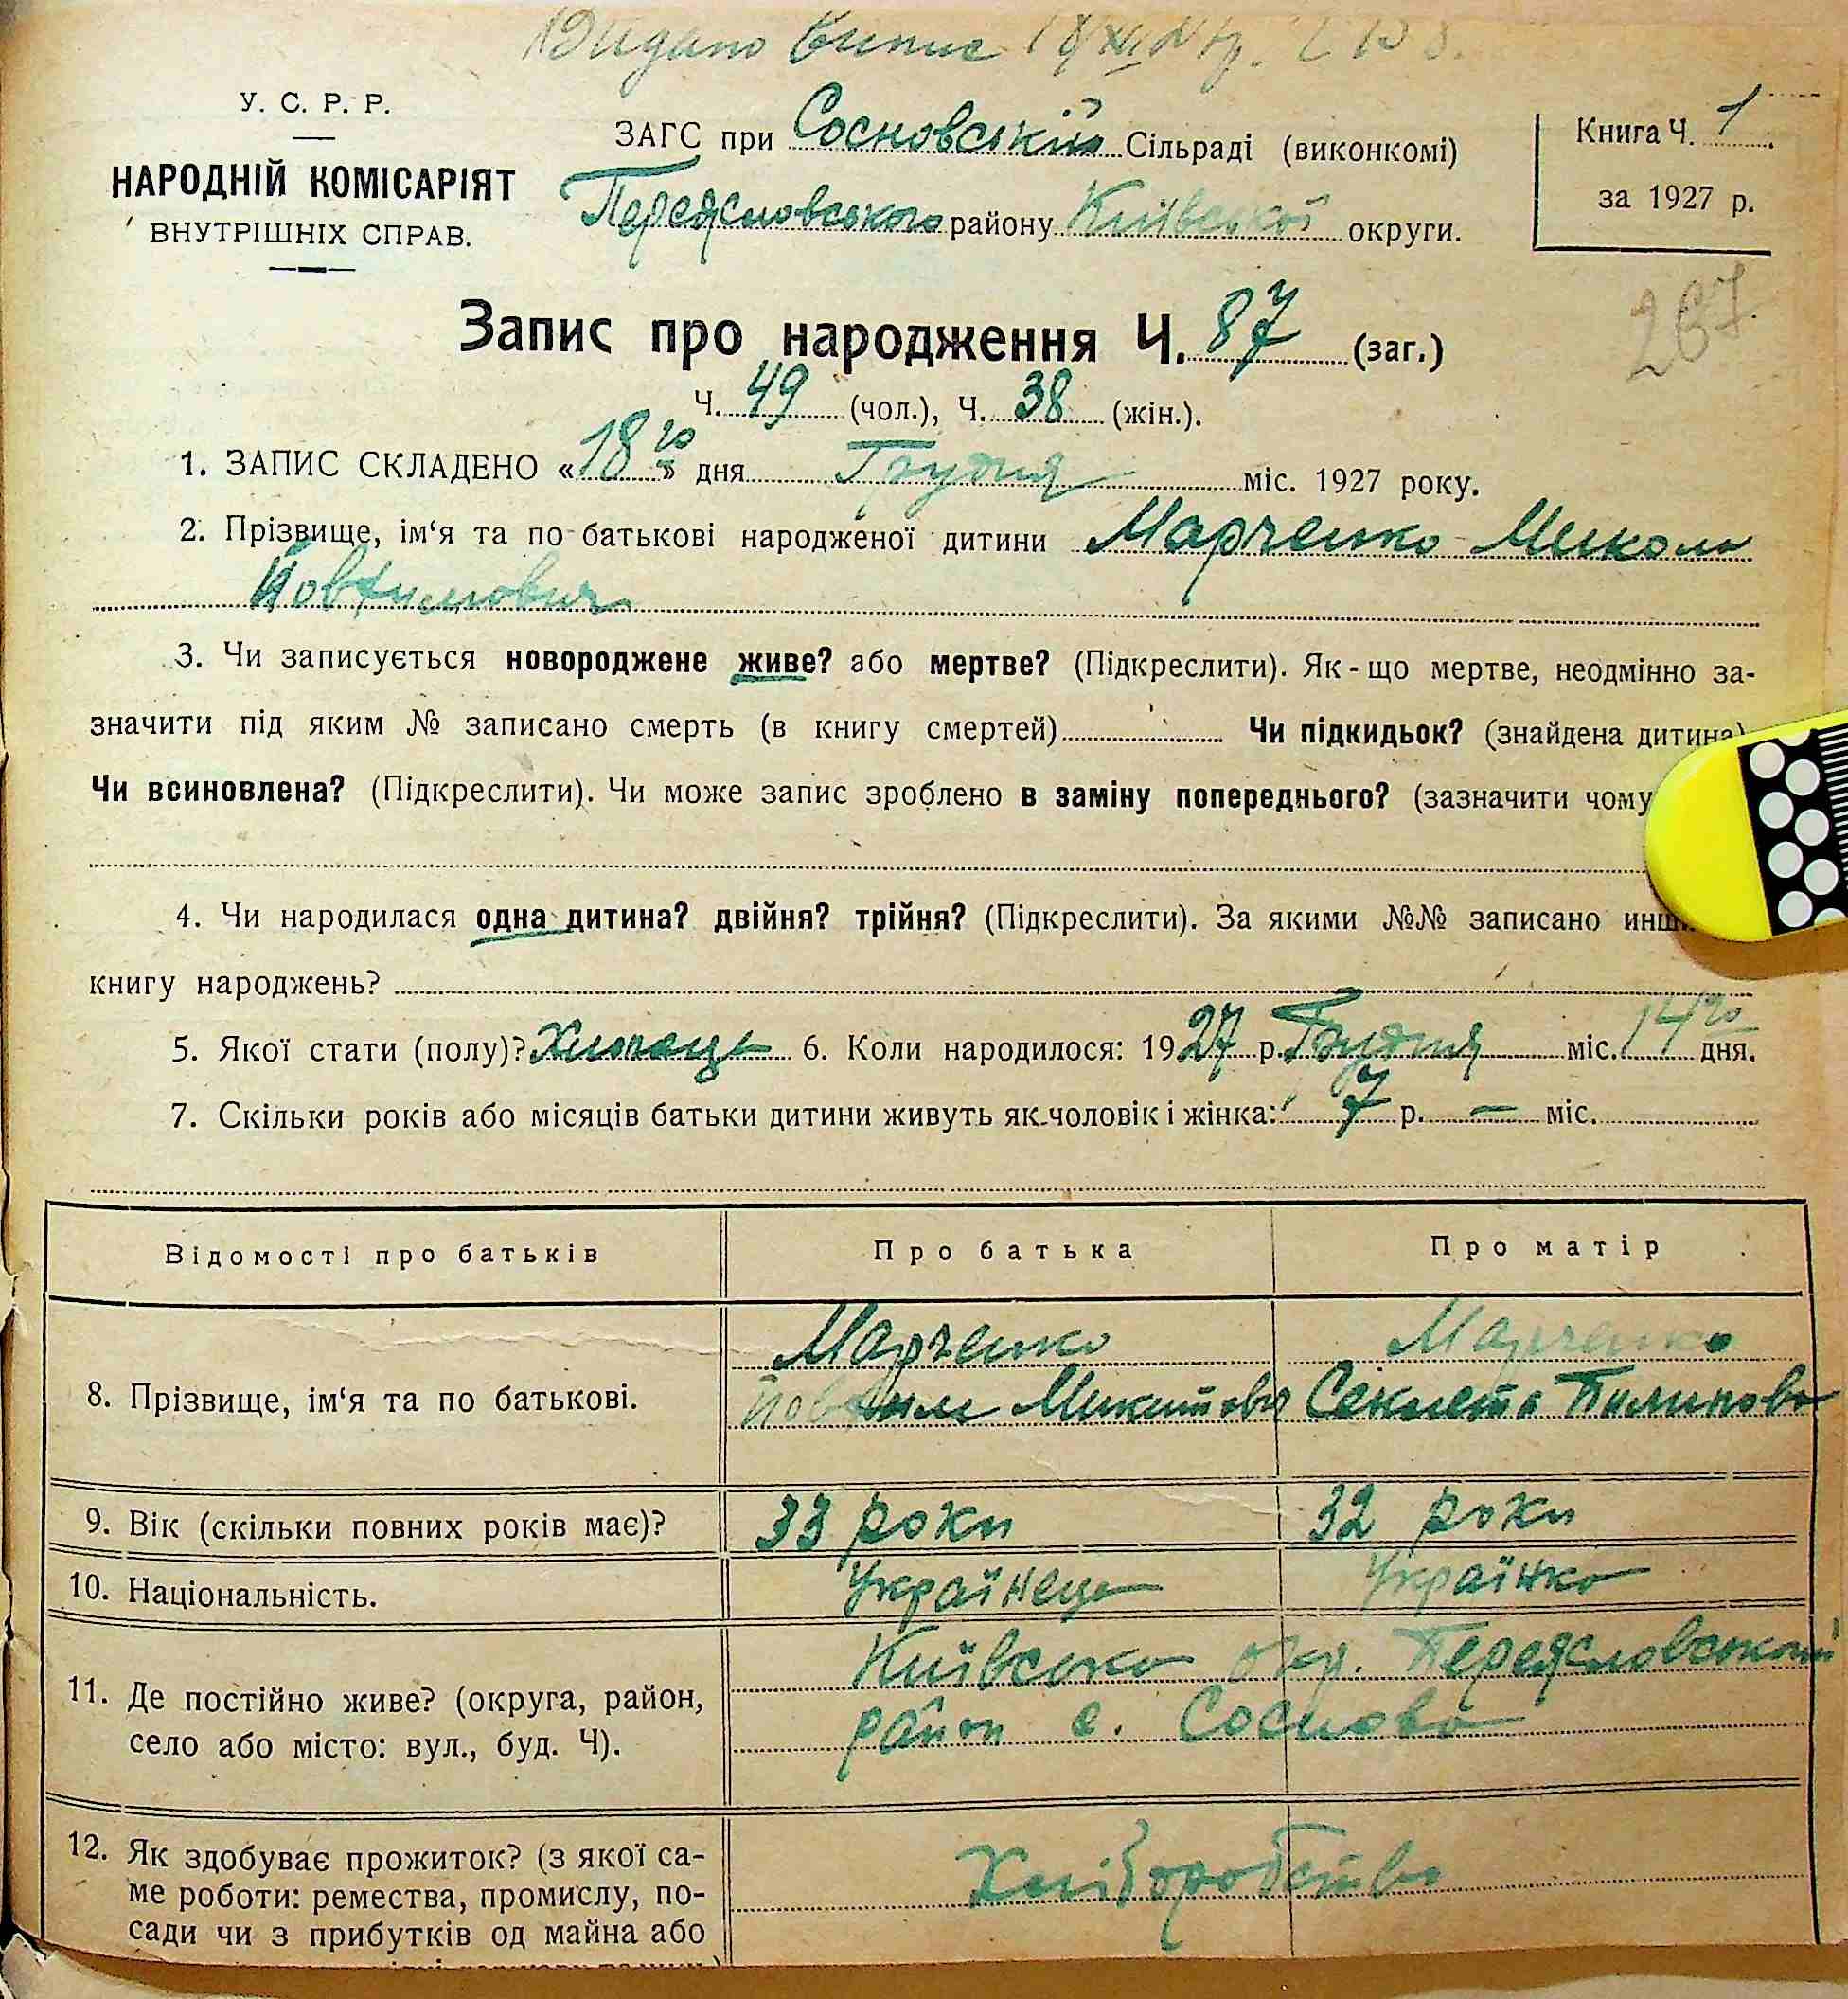 Видано випис
У. С. Р. Р.
НАРОДНІЙ КОМІСАРІЯТ
ВНУТРІШНІХ СПРАВ.
ЗАГС при Сосновській Сільраді (виконкомі)
Переясловського району Київської округи.
Книга Ч. 1
за 1927 р.
267
Запис про народження Ч. 87 (заг.)
Ч. 49 (чол.), Ч. 38 (жін.).
1. ЗАПИС СКЛАДЕНО «18го» дня Грудня міс. 1927 року.
2. Прізвище, ім‘я та по-батькові народженої дитини Марченко Микола
Йовтимович
3. Чи записується новороджене живе? або мертве? (Підкреслити). Як-що мертве, неодмінно за-
значити під яким № записано смерть (в книгу смертей) Чи підкидьок? (знайдена дитина)
Чи всиновлена? (Підкреслити). Чи може запис зроблено в заміну попереднього? (зазначити чому
4. Чи народилася одна дитина? двійня? трійня? (Підкреслити). За якими №№ записано инш
книгу народжень?
5. Якої стати (полу)? Хлопець 6. Коли народилося: 1927 р. Грудня міс. 14го дня.
7. Скільки років або місяців батьки дитини живуть як чоловік і жінка: 7 р. — міс.
Відомості про батьків Про батька Про матір
Марченко Марченко
8. Прізвище, ім‘я та по батькові. Йовтим Микитович Секлета Пилипова
9. Вік (скільки повних років має)? 33 роки 32 роки
10. Національність. Українець Українка
Київська окр. Переясловський
11. Де постійно живе? (округа, район, район с. Соснова
село або місто: вул., буд. Ч).
12. Як здобуває прожиток? (з якої са- Хліборобство
ме роботи: ремества, промислу, по-
сади чи з прибутків од майна або